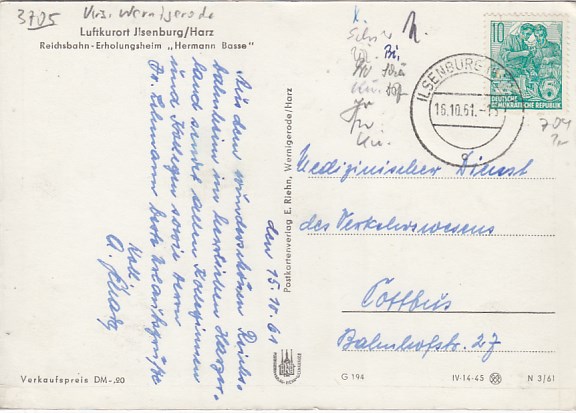 3705 Krs. Wernigerode
Luftkurort Jlsenburg/Harz
Reichsbahn-Erholungsheim „Hermann Basse"
den 15.10.61
Aus dem wunderschönen Reichs-
bahnheim im herrlichen Harzer-
land sendet allen Kolleginnen
und Kollegen sowie Herrn
Dr. Lehmann beste Urlaubsgrüße
Koll
Postkartenverlag E. Riehn, Wernigerode/Harz
10
DEUTSCHE
DEMOKRATISCHE REPUBLIK
ILSENBURG
16.10.61.
Medizinischer Dienst
des Verkehrswesens
Cottbus
Bahnhofstr. 27
Verkaufspreis DM -,20
G 194
IV-14-45
N 3/61